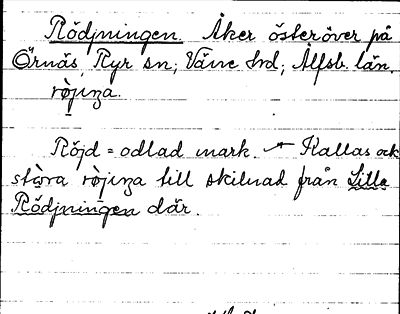 Rödjningen. Åker österöver på
Örnäs, Ryr sn; Väne hd; Älfsb. län.
rò̤jıŋa.
Röjd = odlad mark. Kallas ock
stò̤ra rò̤jıŋa till skilnad från Lilla
Rödjningen där.